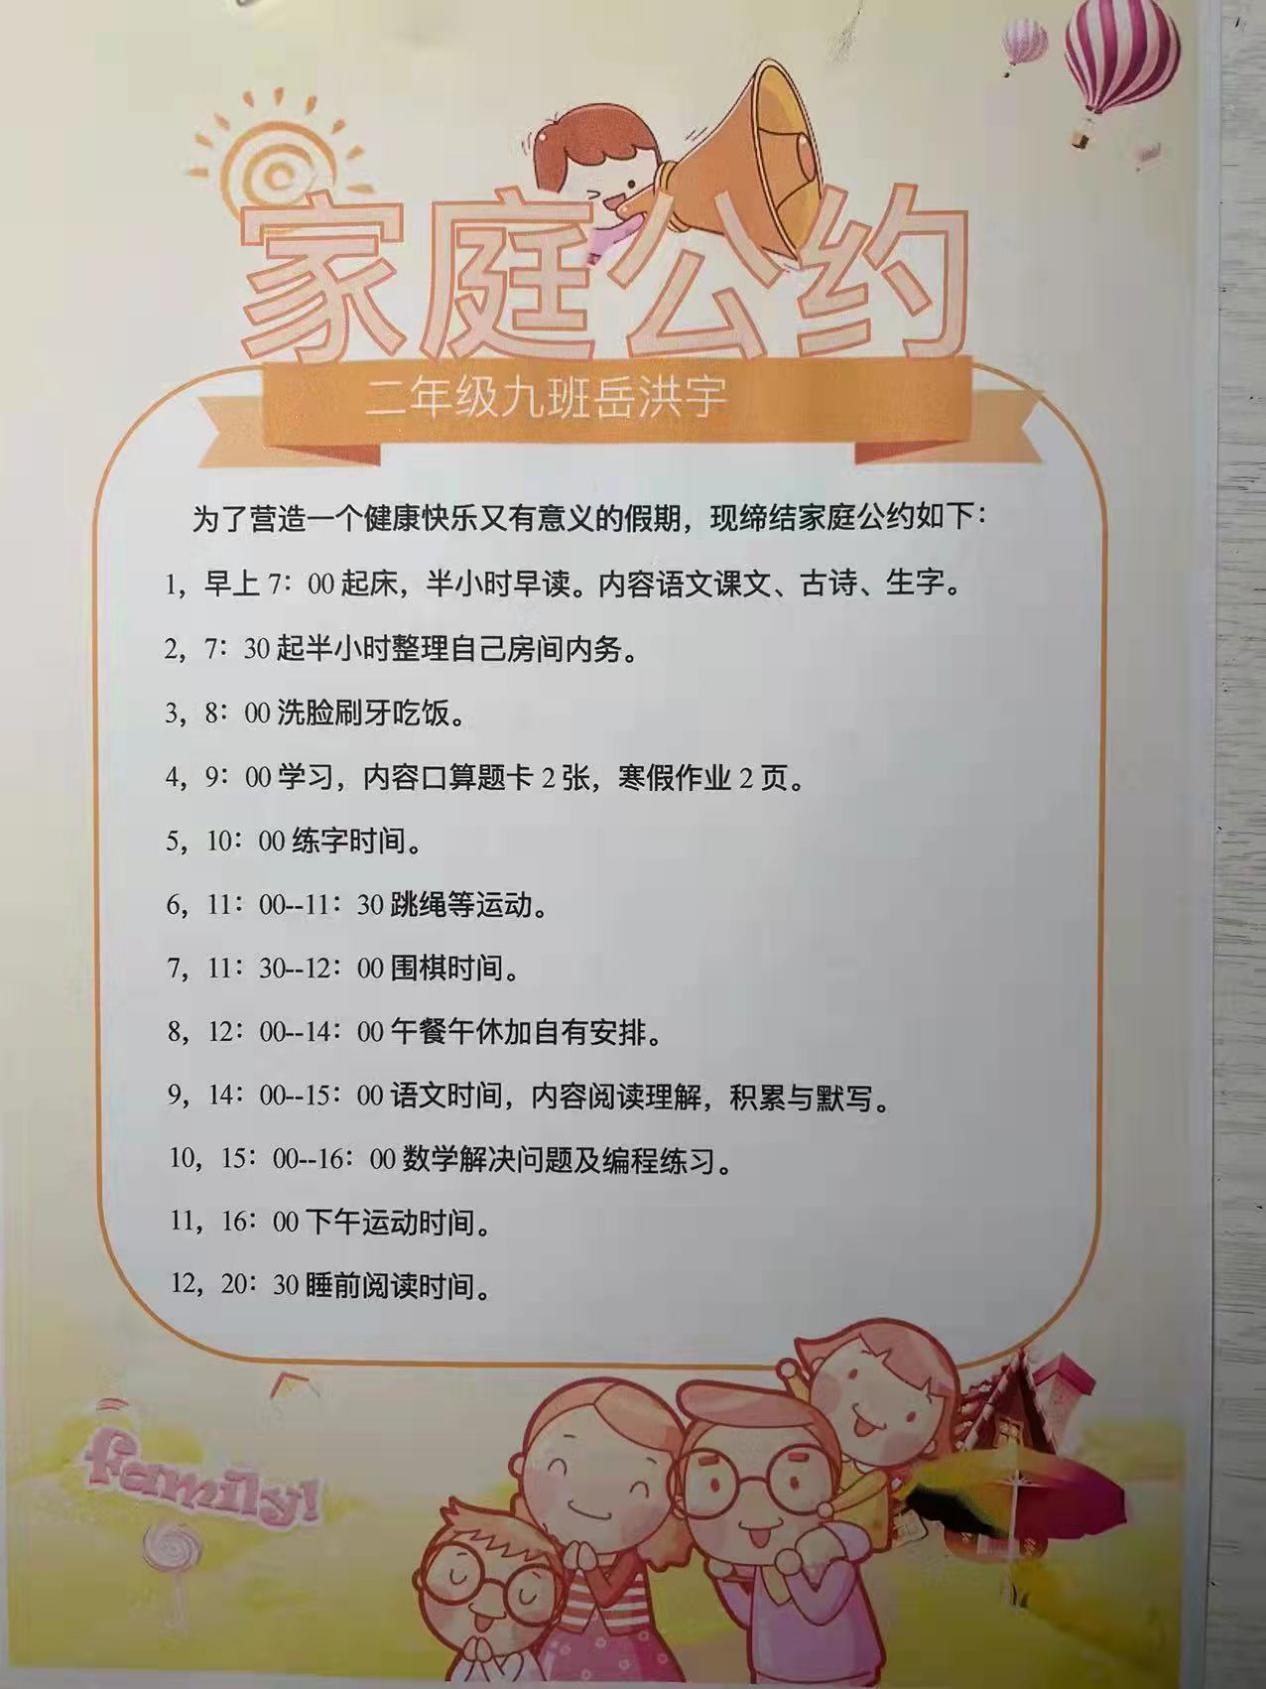 家庭公约
二年级九班岳洪宇
为了营造一个健康快乐又有意义的假期，现缔结家庭公约如下：
1，早上 7：00 起床，半小时早读。内容语文课文、古诗、生字。
2，7：30 起半小时整理自己房间内务。
3，8：00 洗脸刷牙吃饭。
4，9：00 学习，内容口算题卡 2 张，寒假作业 2 页。
5，10：00 练字时间。
6，11：00--11：30 跳绳等运动。
7，11：30--12：00 围棋时间。
8，12：00--14：00 午餐午休加自有安排。
9，14：00--15：00 语文时间，内容阅读理解，积累与默写。
10，15：00--16：00 数学解决问题及编程练习。
11，16：00 下午运动时间。
12，20：30 睡前阅读时间。
family!